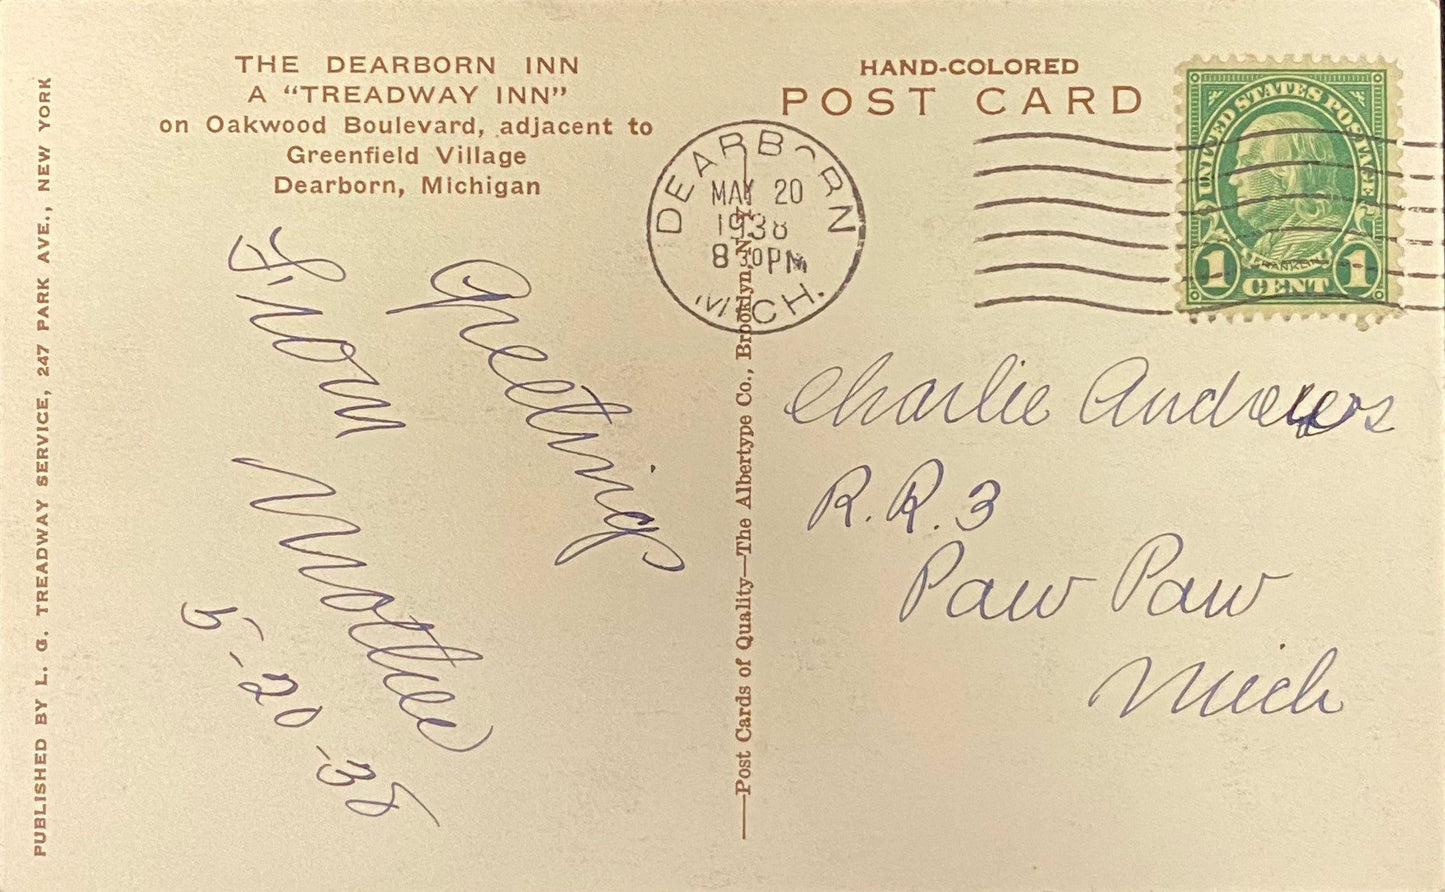 THE DEARBORN INN
A “TREADWAY INN”
on Oakwood Boulevard, adjacent to
Greenfield Village
Dearborn, Michigan
PUBLISHED BY L. G. TREADWAY SERVICE, 247 PARK AVE., NEW YORK
Greeting
From
Mother
5-20-38
—Post Cards of Quality—The Albertype Co., Brooklyn, N.Y.—
HAND-COLORED
POST CARD
DEARBORN
MAY 20
1938
8 30 PM
MICH.
UNITED STATES POSTAGE
FRANKLIN
1 CENT 1
Charlie Andrews
R.R. 3
Paw Paw
Mich